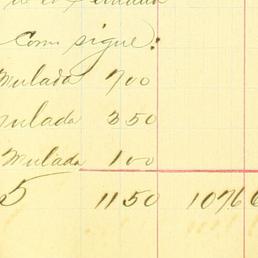 como sigue:
Mulada 700
mulada 350
Mulada 100
5 1150 1076